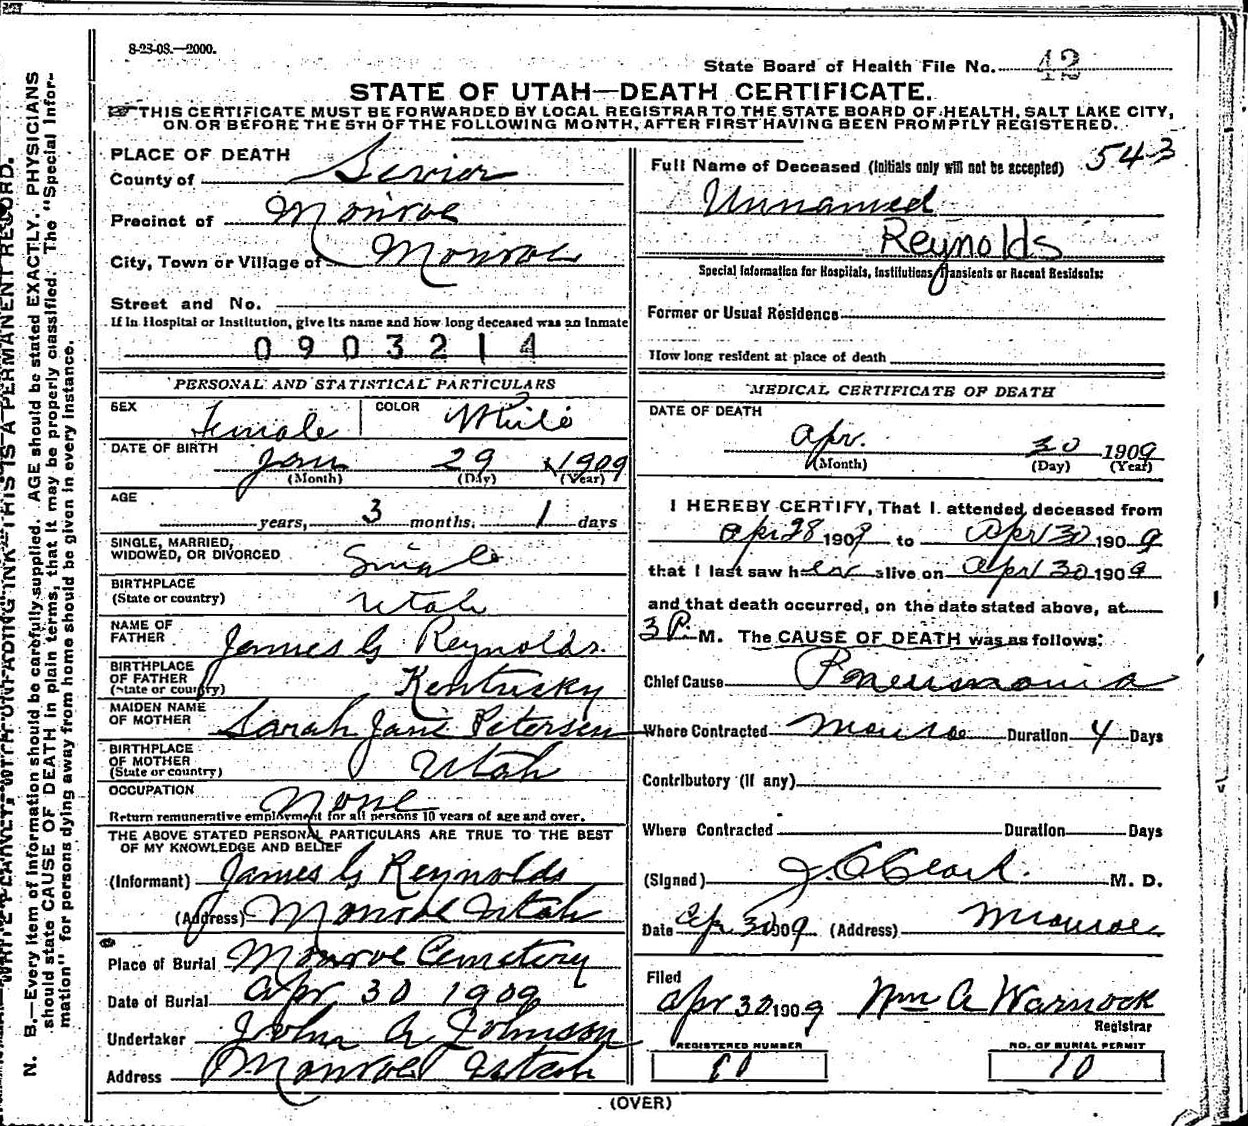 8-23-08.—2000.
State Board of Health File No. 42
STATE OF UTAH—DEATH CERTIFICATE.
THIS CERTIFICATE MUST BE FORWARDED BY LOCAL REGISTRAR TO THE STATE BOARD OF HEALTH, SALT LAKE CITY,
ON OR BEFORE THE 5TH OF THE FOLLOWING MONTH, AFTER FIRST HAVING BEEN PROMPTLY REGISTERED.
PLACE OF DEATH
County of Sevier
Precinct of Monroe
City, Town or Village of Monroe
Street and No.
If in Hospital or Institution, give its name and how long deceased was an Inmate
0903214
PERSONAL AND STATISTICAL PARTICULARS
SEX Female COLOR White
DATE OF BIRTH Jan 29 1909
(Month) (Day) (Year)
AGE
years, 3 months. 1 days
SINGLE, MARRIED,
WIDOWED, OR DIVORCED Single
BIRTHPLACE
(State or country) Utah
NAME OF
FATHER James G Reynolds.
BIRTHPLACE
OF FATHER
(State or country) Kentucky
MAIDEN NAME
OF MOTHER Sarah Jane Petersen
BIRTHPLACE
OF MOTHER
(State or country) Utah
OCCUPATION None
Return remunerative employment for all persons 10 years of age and over.
THE ABOVE STATED PERSONAL PARTICULARS ARE TRUE TO THE BEST
OF MY KNOWLEDGE AND BELIEF
(Informant) James G Reynolds
(Address) Monroe Utah
Place of Burial Monroe Cemetery
Date of Burial Apr 30 1909
Undertaker John A Johnson
Address Monroe Utah
543
Full Name of Deceased (Initials only will not be accepted)
Unnamed
Reynolds
Special Information for Hospitals, Institutions, Transients or Recent Residents:
Former or Usual Residence
How long resident at place of death
MEDICAL CERTIFICATE OF DEATH
DATE OF DEATH
Apr. 30 1909
(Month) (Day) (Year)
I HEREBY CERTIFY, That I attended deceased from
Apr 28 1909 to Apr 30 1909
that I last saw her alive on Apr 30 1909
and that death occurred, on the date stated above, at
3 P. M. The CAUSE OF DEATH was as follows:
Chief Cause Pneumonia
Where Contracted Monroe Duration 4 Days
Contributory (if any)
Where Contracted Duration Days
(Signed) J. C Clark. M. D.
Date Apr 30 1909 (Address) Monroe
Filed
Apr 30 1909 Wm A Warnock
Registrar
REGISTERED NUMBER NO. OF BURIAL PERMIT
10
(OVER)
N. B.—Every item of information should be carefully supplied. AGE should be stated EXACTLY. PHYSICIANS
should state CAUSE OF DEATH in plain terms, that it may be properly classified. The "Special Infor-
mation" for persons dying away from home should be given in every instance.
WRITE PLAINLY, WITH UNFADING INK—THIS IS A PERMANENT RECORD.